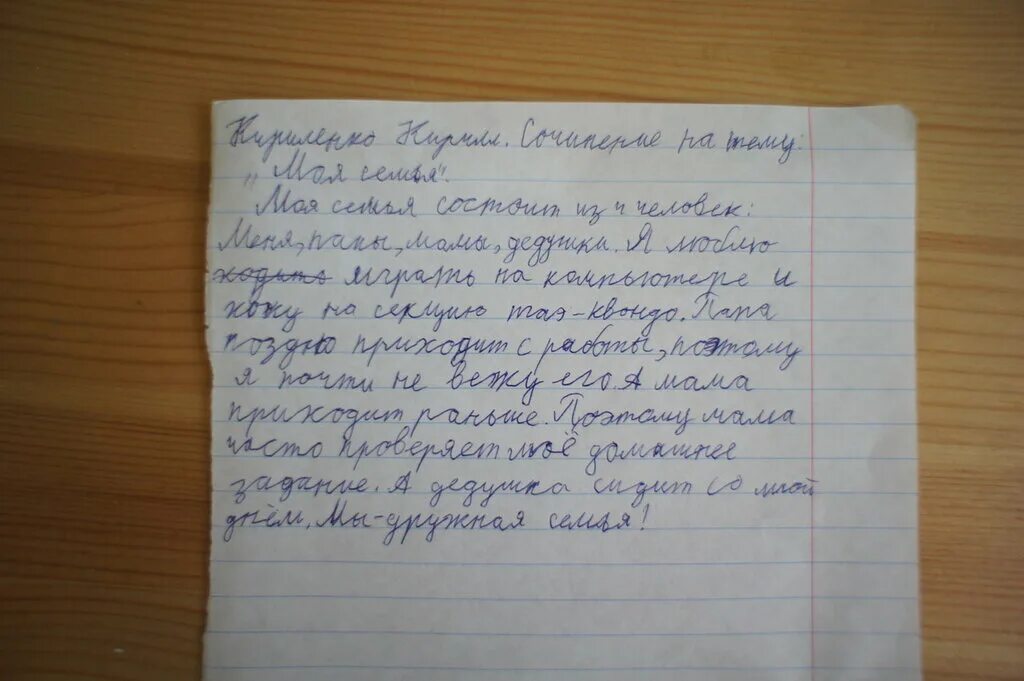 Кириленко Кирилл. Сочинение на тему:
„Моя семья".
Моя семья состоит из 4 человек:
Меня, папы, мамы, дедушки. Я люблю
ходить играть на компьютере и
хожу на секцию таэ-квондо. Папа
поздно приходит с работы, поэтому
я почти не вежу его. А мама
приходит раньше. Поэтому мама
часто проверяет моё домашнее
задание. А дедушка сидит со мной
днём. Мы-дружная семья!